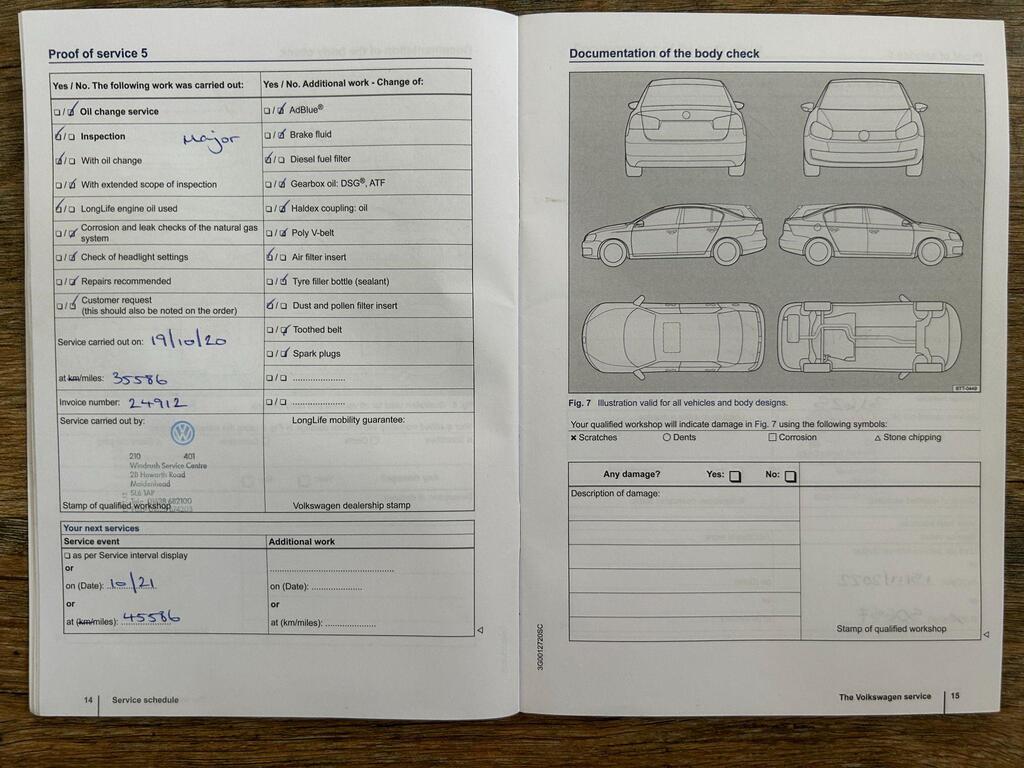 Proof of service 5
Yes / No. The following work was carried out:
☐ / ☑ Oil change service
☑ / ☐ Inspection Major
☑ / ☐ With oil change
☐ / ☑ With extended scope of inspection
☑ / ☐ LongLife engine oil used
☐ / ☑ Corrosion and leak checks of the natural gas
system
☐ / ☑ Check of headlight settings
☐ / ☑ Repairs recommended
☐ / ☑ Customer request
(this should also be noted on the order)
Service carried out on: 19/10/20
at km/miles: 35586
Invoice number: 24912
Service carried out by:
210 401
Windrush Service Centre
Howarth Road
Maidenhead
SL6 1AP
Stamp of qualified workshop
Yes / No. Additional work - Change of:
☐ / ☑ AdBlue®
☐ / ☑ Brake fluid
☑ / ☐ Diesel fuel filter
☐ / ☑ Gearbox oil: DSG®, ATF
☐ / ☑ Haldex coupling: oil
☐ / ☑ Poly V-belt
☑ / ☐ Air filter insert
☐ / ☑ Tyre filler bottle (sealant)
☑ / ☐ Dust and pollen filter insert
☐ / ☑ Toothed belt
☐ / ☑ Spark plugs
☐ / ☐ .....................
☐ / ☐ .....................
LongLife mobility guarantee:
Volkswagen dealership stamp
Your next services
Service event
☐ as per Service interval display
or
on (Date): 10/21
or
at (km/miles): 45586
Additional work
on (Date): .....................
or
at (km/miles): .....................
14 Service schedule
Documentation of the body check
BTT-0449
Fig. 7 Illustration valid for all vehicles and body designs.
Your qualified workshop will indicate damage in Fig. 7 using the following symbols:
× Scratches ○ Dents □ Corrosion △ Stone chipping
Any damage? Yes: ☐ No: ☐
Description of damage:
Stamp of qualified workshop
3G0012720SC
The Volkswagen service 15